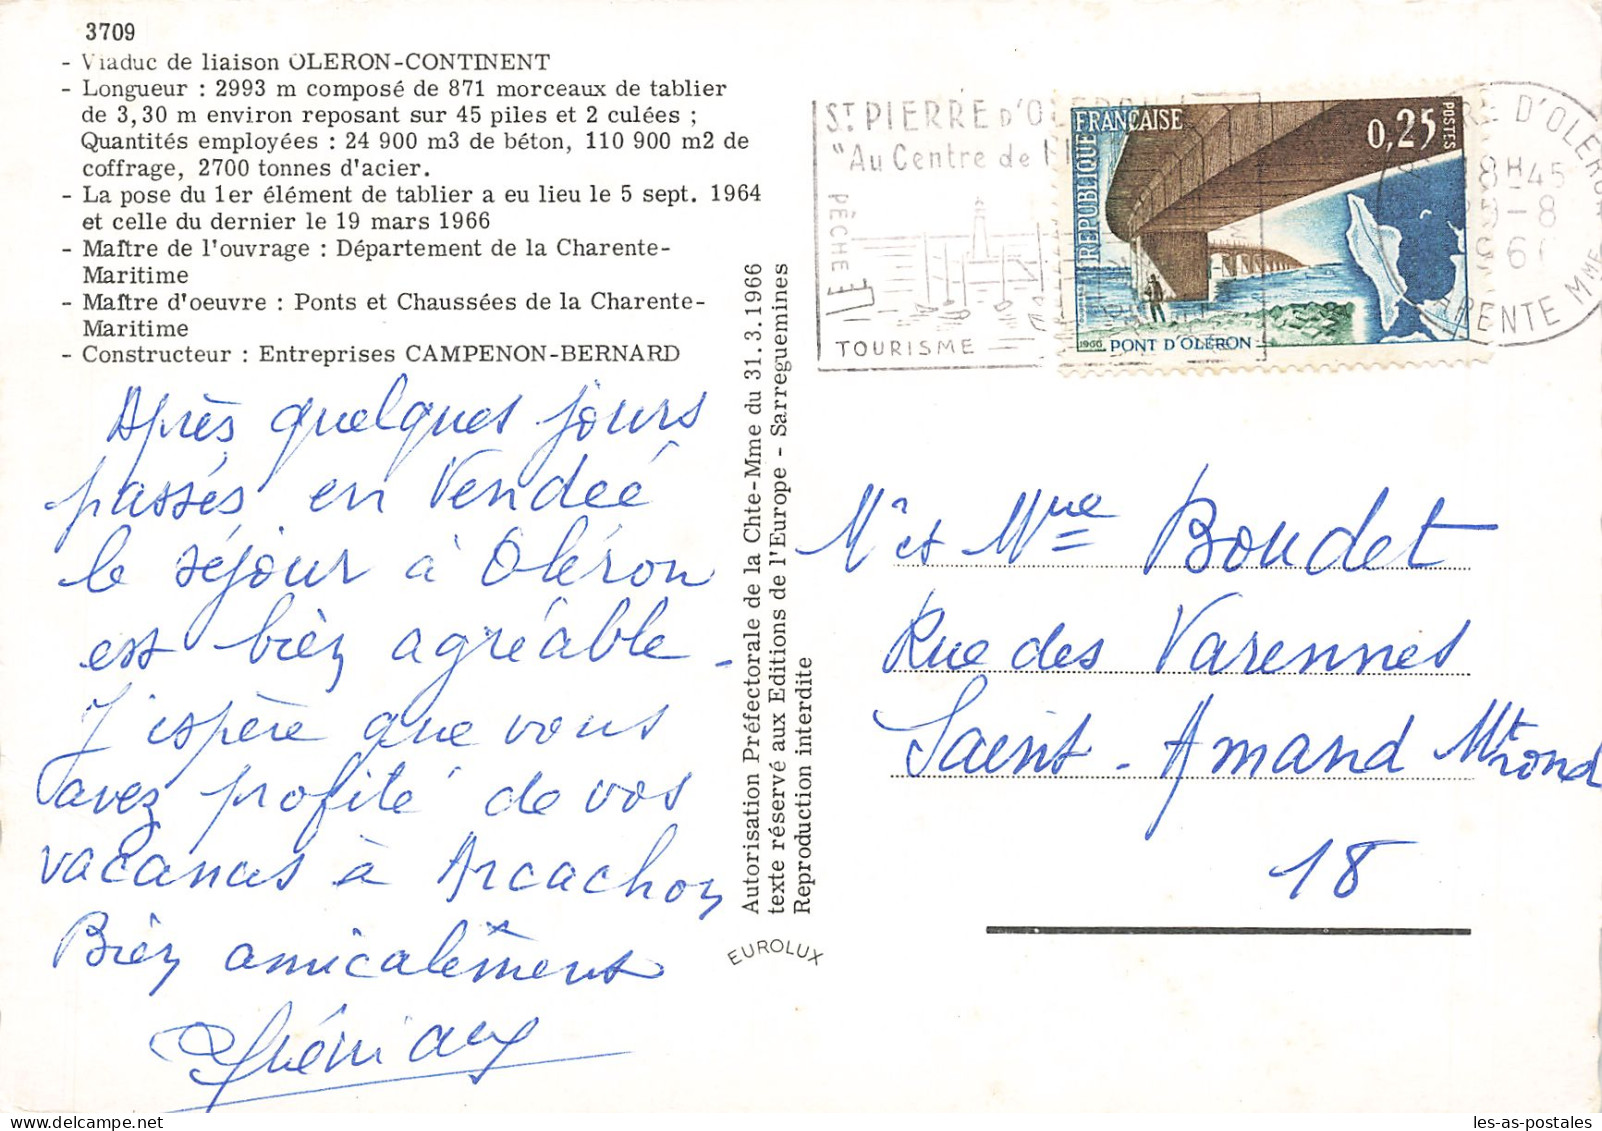 3709
- Viaduc de liaison OLERON-CONTINENT
- Longueur : 2993 m composé de 871 morceaux de tablier
de 3,30 m environ reposant sur 45 piles et 2 culées ;
Quantités employées : 24 900 m3 de béton, 110 900 m2 de
coffrage, 2700 tonnes d'acier.
- La pose du 1er élément de tablier a eu lieu le 5 sept. 1964
et celle du dernier le 19 mars 1966
- Maître de l'ouvrage : Département de la Charente-
Maritime
- Maître d'oeuvre : Ponts et Chaussées de la Charente-
Maritime
- Constructeur : Entreprises CAMPENON-BERNARD
Après quelques jours
passés en Vendée
le séjour à Oléron
est bien agréable -
J'espère que vous
avez profité de vos
vacances à Arcachon
Bien amicalement
Autorisation Préfectorale de la Chte-Mme du 31.3.1966
texte réservé aux Editions de l'Europe - Sarreguemines
Reproduction interdite
EUROLUX
ST PIERRE D'OLERON
"Au Centre de l'
PÊCHE
TOURISME
REPUBLIQUE FRANÇAISE
0,25
POSTES
1966 PONT D'OLÉRON
RE D'OLERON
8H45
5-8
ARENTE MME
Mr et Mme Boudet
Rue des Varennes
Saint-Amand Mtrond
18